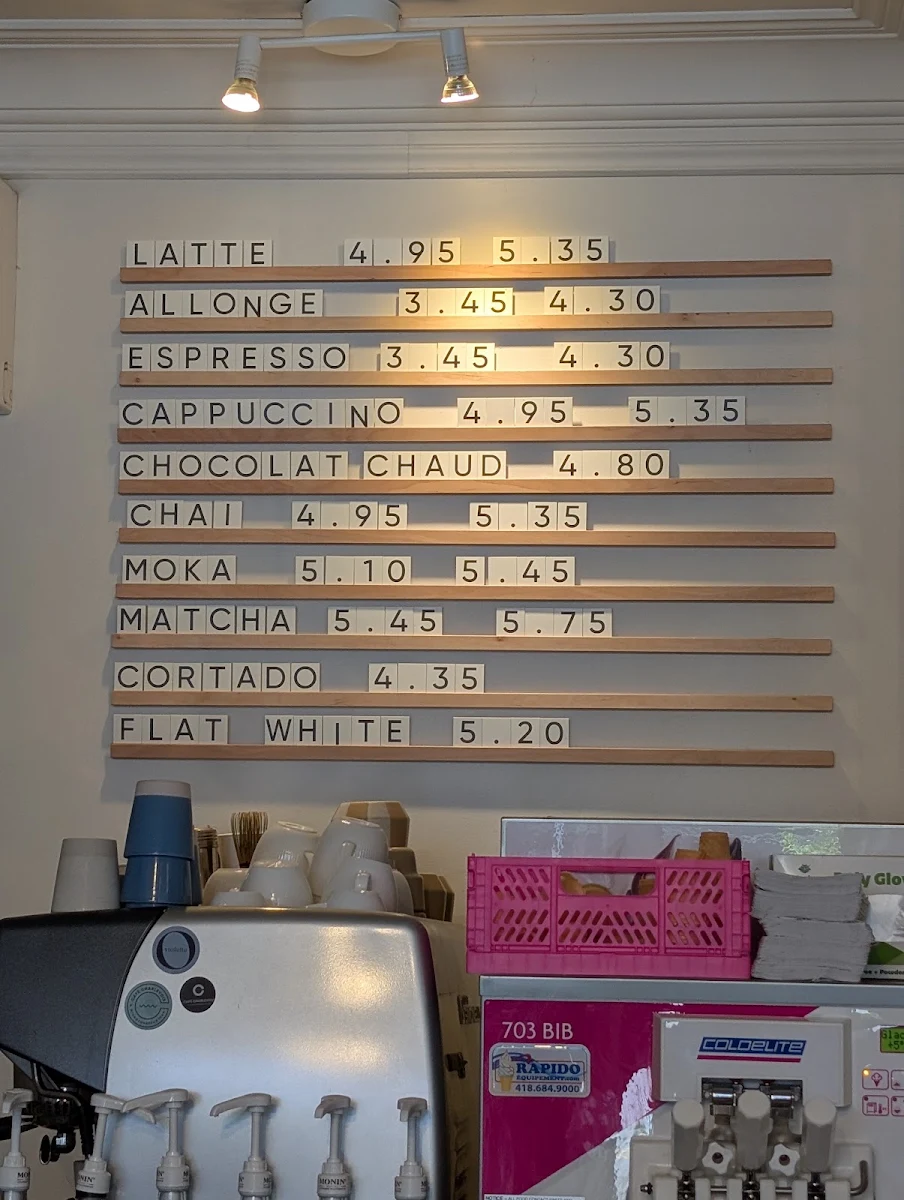 LATTE 4.95 5.35
ALLONGE 3.45 4.30
ESPRESSO 3.45 4.30
CAPPUCCINO 4.95 5.35
CHOCOLAT CHAUD 4.80
CHAI 4.95 5.35
MOKA 5.10 5.45
MATCHA 5.45 5.75
CORTADO 4.35
FLAT WHITE 5.20
703 BIB
RAPIDO
EQUIPEMENT.com
418.684.9000
COLDELITE
MONIN